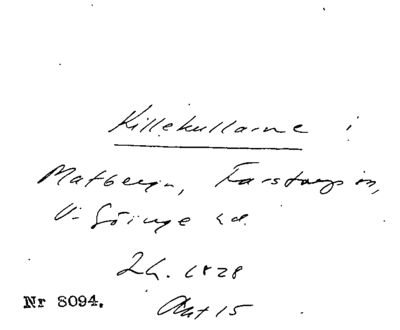 Killekullarne i
Matbergen, Farstorps sn,
V. Göinge hd.
2 h. 1828
Nr 8094. Aut 15